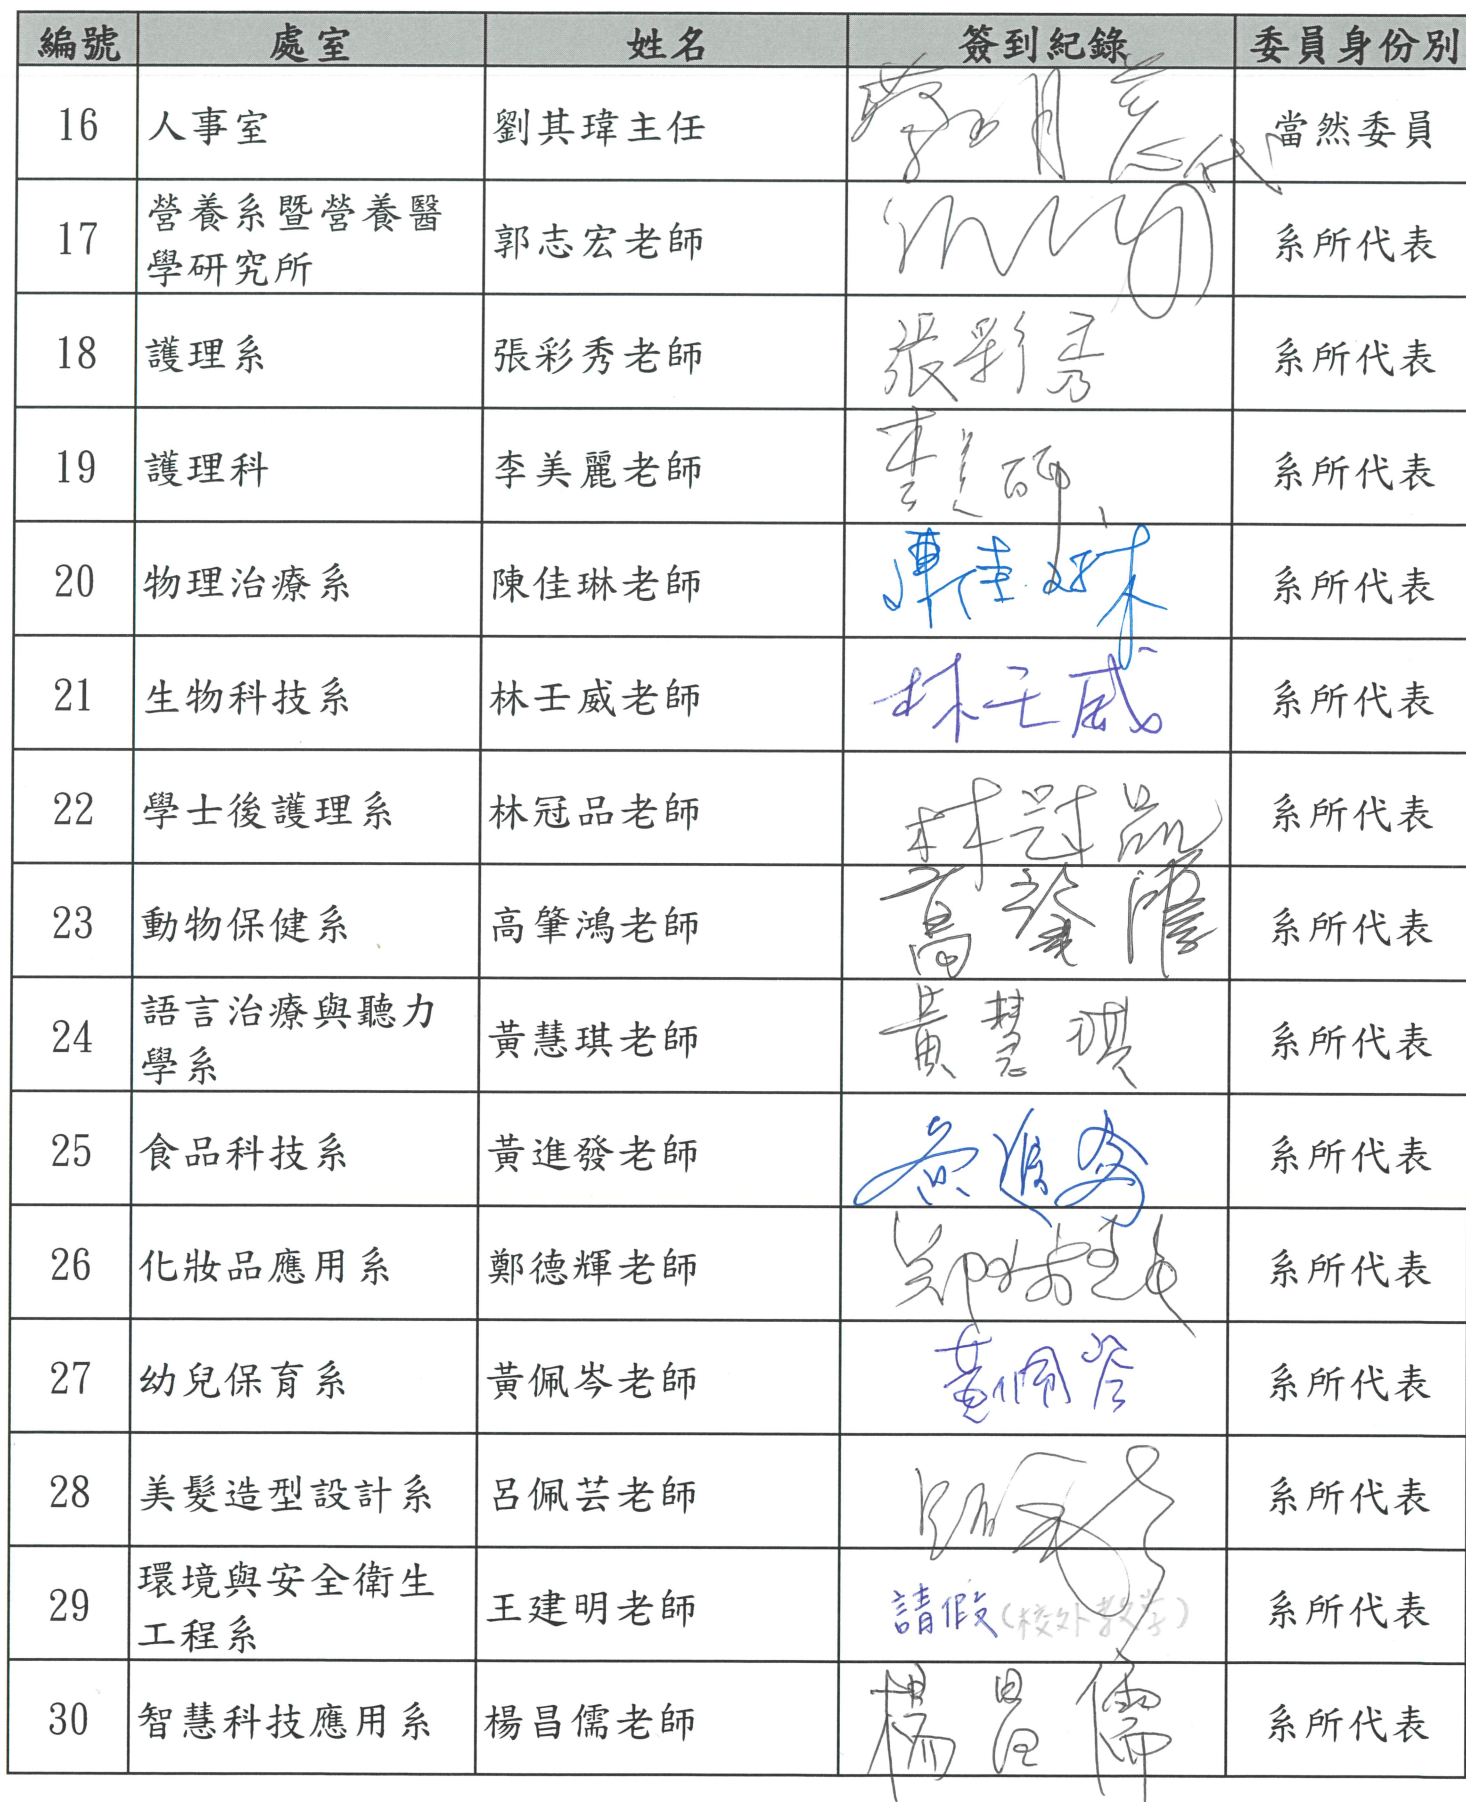 編號 處室 姓名 簽到紀錄 委員身份別
16 人事室 劉其瑋主任 代 當然委員
營養系暨營養醫
17 郭志宏老師 系所代表
學研究所
18 護理系 張彩秀老師 張彩秀 系所代表
19 護理科 李美麗老師 李美 系所代表
20 物理治療系 陳佳琳老師 陳佳琳 系所代表
21 生物科技系 林壬威老師 林壬威 系所代表
22 學士後護理系 林冠品老師 林冠品 系所代表
23 動物保健系 高肇鴻老師 高肇鴻 系所代表
語言治療與聽力
24 黃慧琪老師 黃慧琪 系所代表
學系
25 食品科技系 黃進發老師 黃進發 系所代表
26 化妝品應用系 鄭德輝老師 系所代表
27 幼兒保育系 黃佩岑老師 黃佩岑 系所代表
28 美髮造型設計系 呂佩芸老師 系所代表
環境與安全衛生
29 王建明老師 請假(校外教學) 系所代表
工程系
30 智慧科技應用系 楊昌儒老師 楊昌儒 系所代表